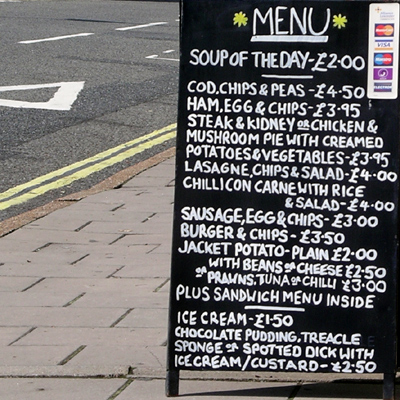 MENU
SOUP OF THE DAY-£2·00
COD, CHIPS & PEAS - £4·50
HAM, EGG & CHIPS - £3·95
STEAK & KIDNEY OR CHICKEN &
MUSHROOM PIE WITH CREAMED
POTATOES & VEGETABLES - £3·95
LASAGNE, CHIPS & SALAD - £4·00
CHILLI CON CARNE WITH RICE
& SALAD - £4·00
SAUSAGE, EGG & CHIPS - £3·00
BURGER & CHIPS - £3·50
JACKET POTATO - PLAIN £2·00
WITH BEANS OR CHEESE £2·50
OR PRAWNS, TUNA OR CHILLI £3·00
PLUS SANDWICH MENU INSIDE
ICE CREAM - £1·50
CHOCOLATE PUDDING, TREACLE
SPONGE OR SPOTTED DICK WITH
ICE CREAM/CUSTARD - £2·50
VISA